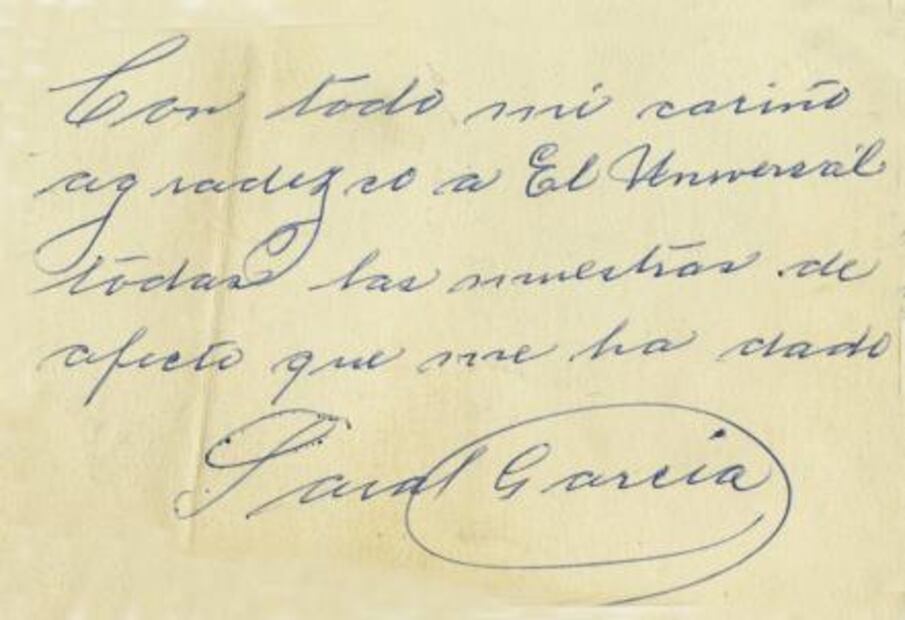 Con todo mi cariño
agradezco a El Universál
todas las muestras de
afecto que me ha dado
Sara García